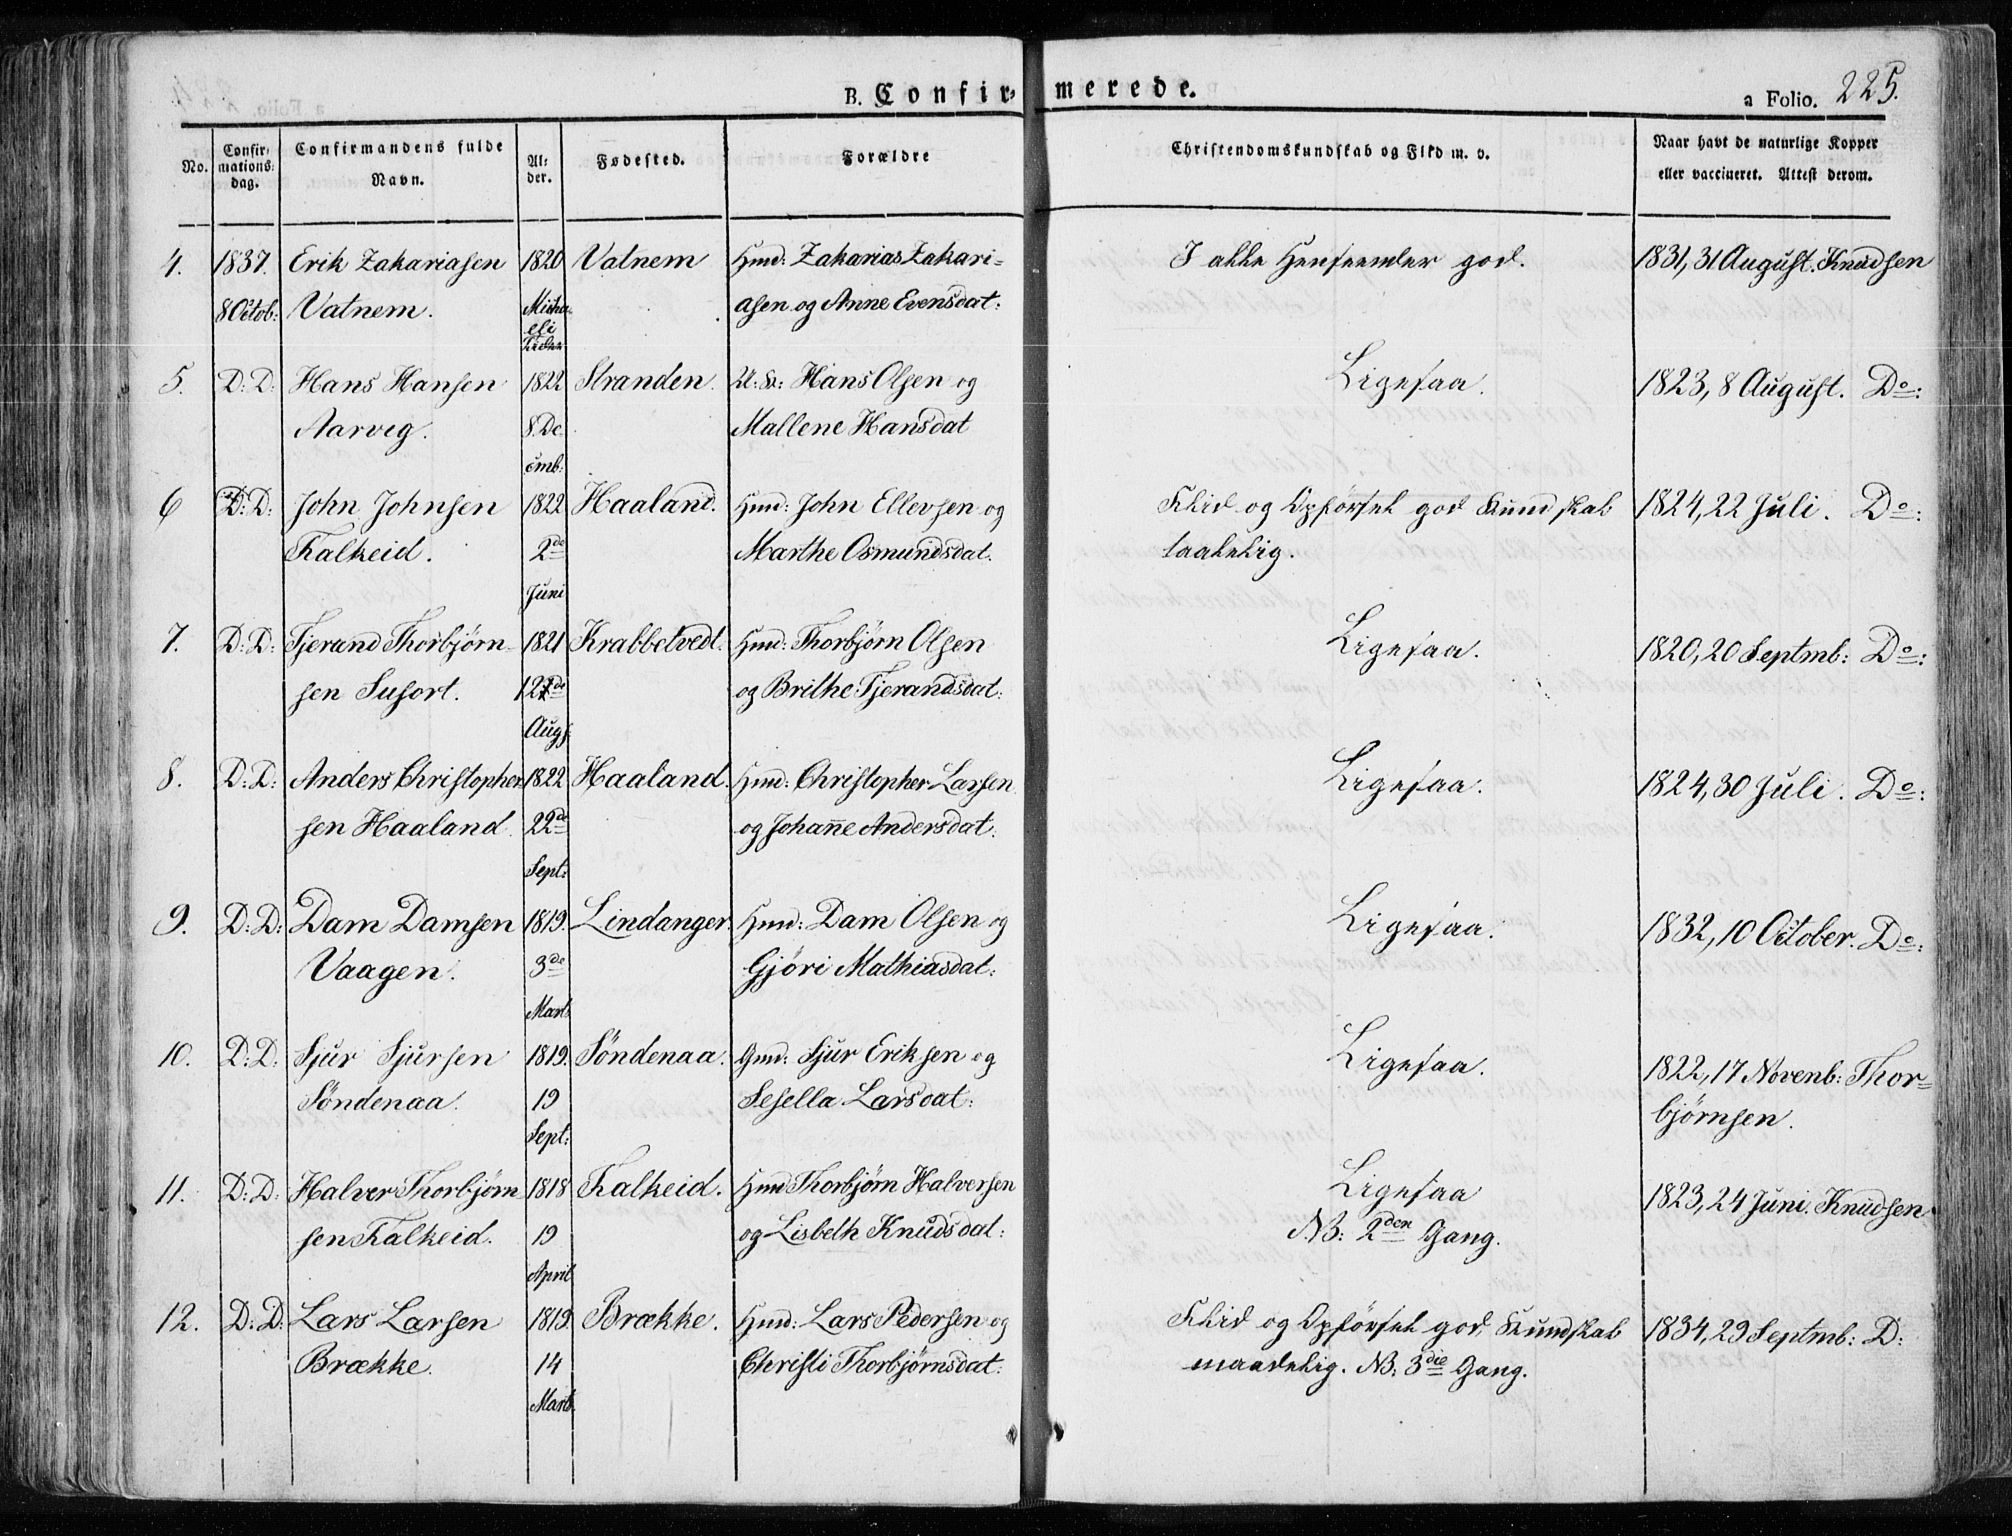 B. Confir= merede.
a Folio. 225.
No.
Confir= mations= dag.
Confirmandens fulde Navn.
Al= der.
Fødested.
Forældre
Christendomskundskab og Flid m. v.
Naar havt de naturlige Kopper eller vaccineret. Attest derom.
4. 1837. Erik Zakariasen 1820 Vatnem Gmd: Zakarias Zakari= I alle Henseender god. 1831, 31 August. Knudsen
8 Octob: Vatnem. Micha= asen og Anne Evensdat:
eli
5. D: D: Hans Hansen 1822 Stranden. U: Sv: Hans Olsen og Ligesaa. 1823, 8 August. Do:
Aarvig. 8. De Mallene Hansdat
cmb:
6 D: D: John Johnsen 1822 Haaland. Gmd: John Ellevsen og Flid og Opførsel god Kundskab 1824, 22 Juli. Do:
Falkeid. 2de Marthe Osmundsdat. taalelig.
Juni
7. D: D: Tjerand Thorbjørn= 1821 Krabbetvedt. Gmd: Thorbjørn Olsen Ligesaa. 1820, 20 Septmb: Do:
sen Susort. 12de og Brithe Tjerandsdat:
Augs.
8. D: D: Anders Christopher= 1822 Haaland. Gmd: Christopher Larsen Ligesaa. 1824, 30 Juli. Do:
sen Haaland. 22de og Johanne Andersdat:
Sept:
9. D: D: Dam Damsen 1819. Lindanger. Gmd: Dam Olsen og Ligesaa. 1832, 10 October. Do:
Vaagen. 3de Gjøri Mathiasdat:
Marts
10. D: D: Sjur Sjursen 1819. Søndenaa. Gmd: Sjur Eriksen og Ligesaa. 1822, 17 Novenb: Thor=
Søndenaa. 19 Sesella Larsdat: bjørnsen.
Sept:
11. D: D: Halver Thorbjørn 1818 Falkeid. Gmd Thorbjørn Halversen Ligesaa 1823, 24 Juni. Knudsen
sen Falkeid. 19 og Lisbeth Knudsdat: NB: 2den Gang.
April
12. D: D: Lars Larsen 1819 Brække. Gmd: Lars Pedersen og Flid og Opførsel god, Kundskab 1834, 29 Septmb: D:
Brække. 14 Christi Thorbjørnsdat: maadelig. NB: 3die Gang.
Marts